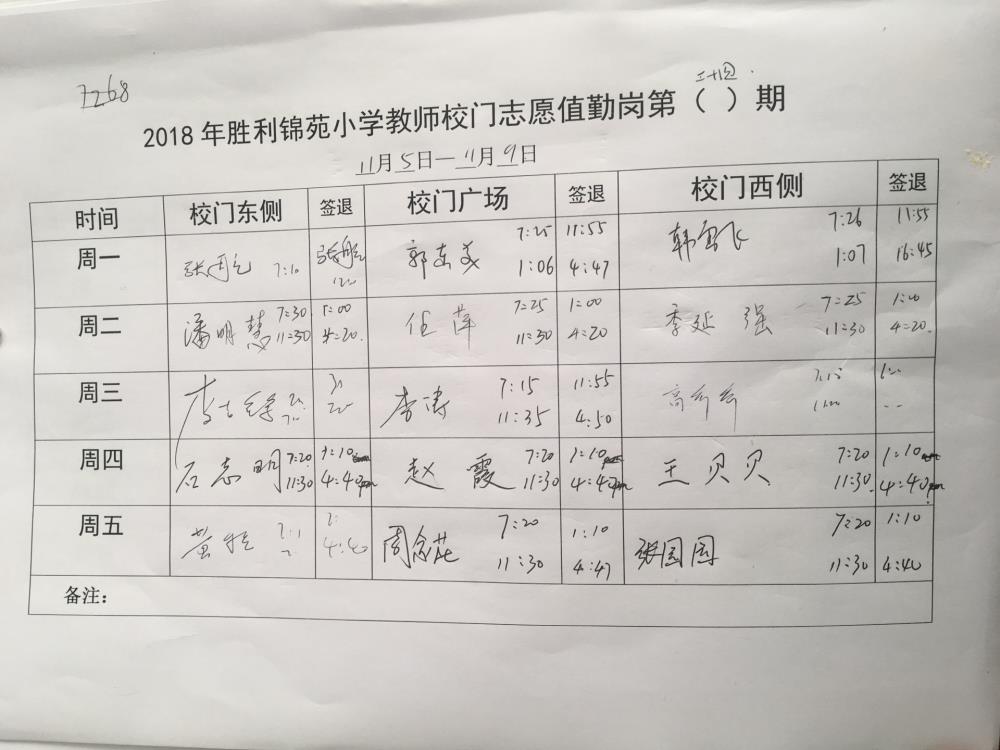 7268
2018年胜利锦苑小学教师校门志愿值勤岗第( )期
11月5日—11月9日
时间 校门东侧 签退 校门广场 签退 校门西侧 签退
周一 7:10 7:25 11:55 7:26 11:55
1:06 4:47 1:07 16:45
周二 潘明慧 7:30 1:00 任萍 7:25 1:00 季延强 7:25 1:00
11:30 4:20 11:30 4:20 11:30 4:20
周三 李涛 7:15 11:55
11:35 4:50
周四 石志明 7:20 1:10 赵霞 7:20 1:10 王贝贝 7:20 1:10
11:30 4:40pm 11:30 4:40pm 11:30 4:40pm
周五 7:20 1:10 张园园 7:20 1:10
4:40 11:30 4:47 11:30 4:40
备注: